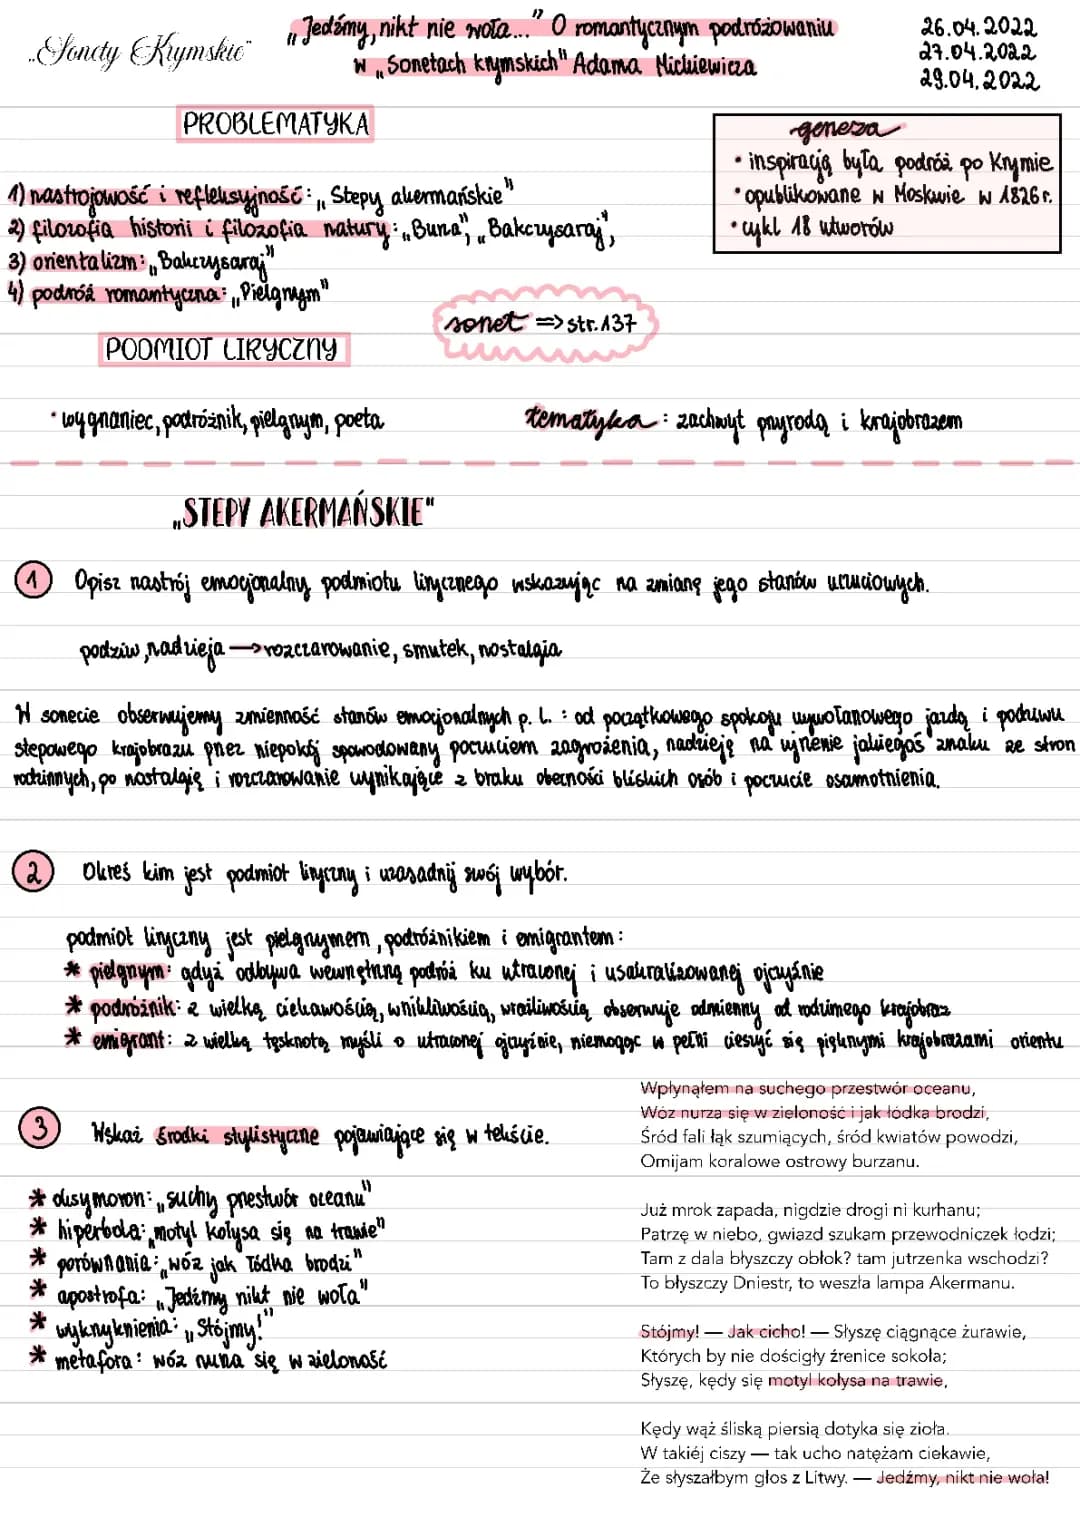 „Sonety Krymskie"
„Jedźmy, nikt nie woła..." O romantycznym podróżowaniu
w „Sonetach krymskich" Adama Mickiewicza
26.04.2022
27.04.2022
29.04.2022
PROBLEMATYKA
geneza
• inspiracją była podróż po Krymie
• opublikowane w Moskwie w 1826r.
• cykl 18 utworów
1) nastrojowość i refleksyjność: „Stepy akermańskie"
2) filozofia historii i filozofia natury: „Burza", „Bakczysaraj",
3) orientalizm: „Bakczysaraj"
4) podróż romantyczna: „Pielgrzym"
sonet => str.137
PODMIOT LIRYCZNY
• wygnaniec, podróżnik, pielgrzym, poeta
tematyka: zachwyt przyrodą i krajobrazem
„STEPY AKERMAŃSKIE"
1 Opisz nastrój emocjonalny podmiotu lirycznego wskazując na zmianę jego stanów uczuciowych.
podziw, nadzieja → rozczarowanie, smutek, nostalgia
W sonecie obserwujemy zmienność stanów emocjonalnych p. l. : od początkowego spokoju wywołanowego jazdą i podziwu
stepowego krajobrazu przez niepokój spowodowany poczuciem zagrożenia, nadzieję na ujrzenie jakiegoś znaku ze stron
rodzinnych, po nostalgię i rozczarowanie wynikające z braku obecności bliskich osób i poczucie osamotnienia.
2 Okreś kim jest podmiot liryczny i uzasadnij swój wybór.
podmiot liryczny jest pielgrzymem, podróżnikiem i emigrantem:
* pielgrzym: gdyż odbywa wewnętrzną podróż ku utraconej i usakralizowanej ojczyźnie
* podróżnik: z wielką ciekawością, wnikliwością, wrażliwością obserwuje odmienny od rodzimego krajobraz
* emigrant: z wielką tęsknotą myśli o utraconej ojczyźnie, niemogąc w pełni cieszyć się pięknymi krajobrazami orientu
3 Wskaż środki stylistyczne pojawiające się w tekście.
* oksymoron: „suchy przestwór oceanu"
* hiperbola: „motyl kołysa się na trawie"
* porównania: „wóz jak łódka brodzi"
* apostrofa: „Jedźmy nikt nie woła"
* wykrzyknienia: „Stójmy!"
* metafora: wóz nurza się w zieloność
Wpłynąłem na suchego przestwór oceanu,
Wóz nurza się w zieloność i jak łódka brodzi,
Śród fali łąk szumiących, śród kwiatów powodzi,
Omijam koralowe ostrowy burzanu.
Już mrok zapada, nigdzie drogi ni kurhanu;
Patrzę w niebo, gwiazd szukam przewodniczek łodzi;
Tam z dala błyszczy obłok? tam jutrzenka wschodzi?
To błyszczy Dniestr, to weszła lampa Akermanu.
Stójmy! — Jak cicho! — Słyszę ciągnące żurawie,
Których by nie dościgły źrenice sokoła;
Słyszę, kędy się motyl kołysa na trawie,
Kędy wąż śliską piersią dotyka się zioła.
W takiéj ciszy — tak ucho natężam ciekawie,
Że słyszałbym głos z Litwy. — Jedźmy, nikt nie woła!